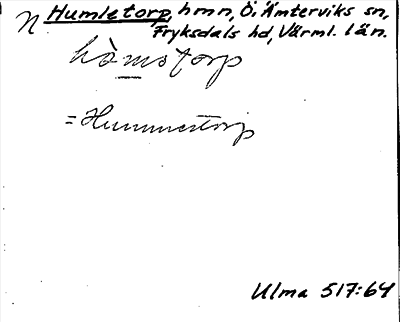 N Humletorp, hmn, Ö. Ämterviks sn,
Fryksdals hd, Värml. län.
hòmstorp
= Hummerstorp
Ulma 517:64